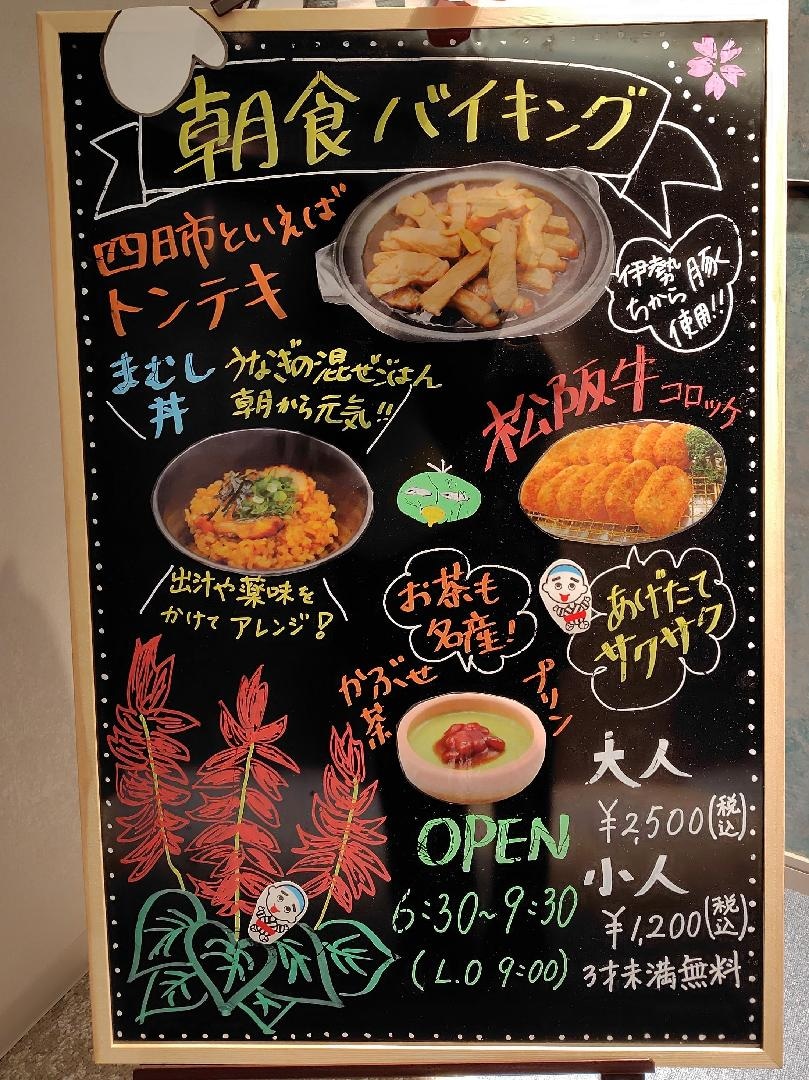 朝食バイキング
四日市といえば
トンテキ
伊勢
ちから豚
使用!!
まむし
丼
うなぎの混ぜごはん
朝から元気!!
松阪牛コロッケ
出汁や薬味を
かけてアレンジ!
お茶も
名産!
あげたて
サクサク
かぶせ
茶
プリン
大人
¥2,500(税込)
小人
¥1,200(税込)
3才未満無料
OPEN
6:30~9:30
(L.O 9:00)